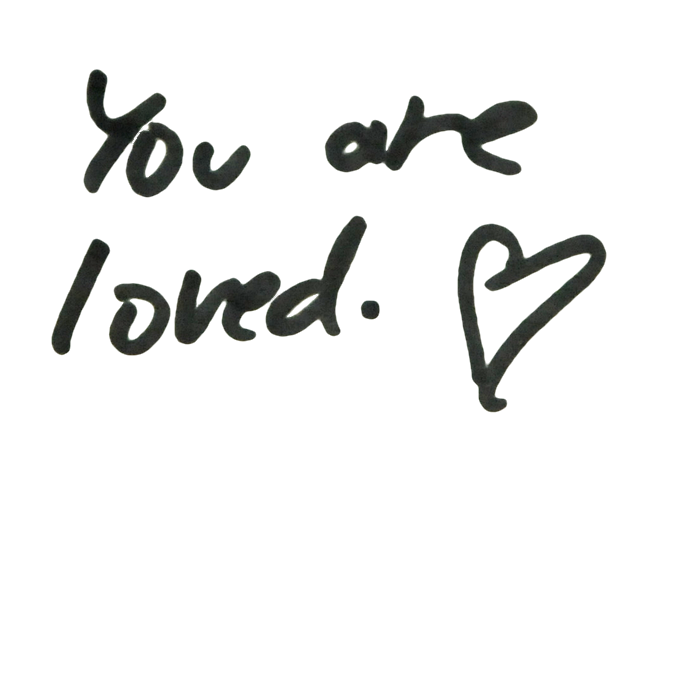 You are
loved.